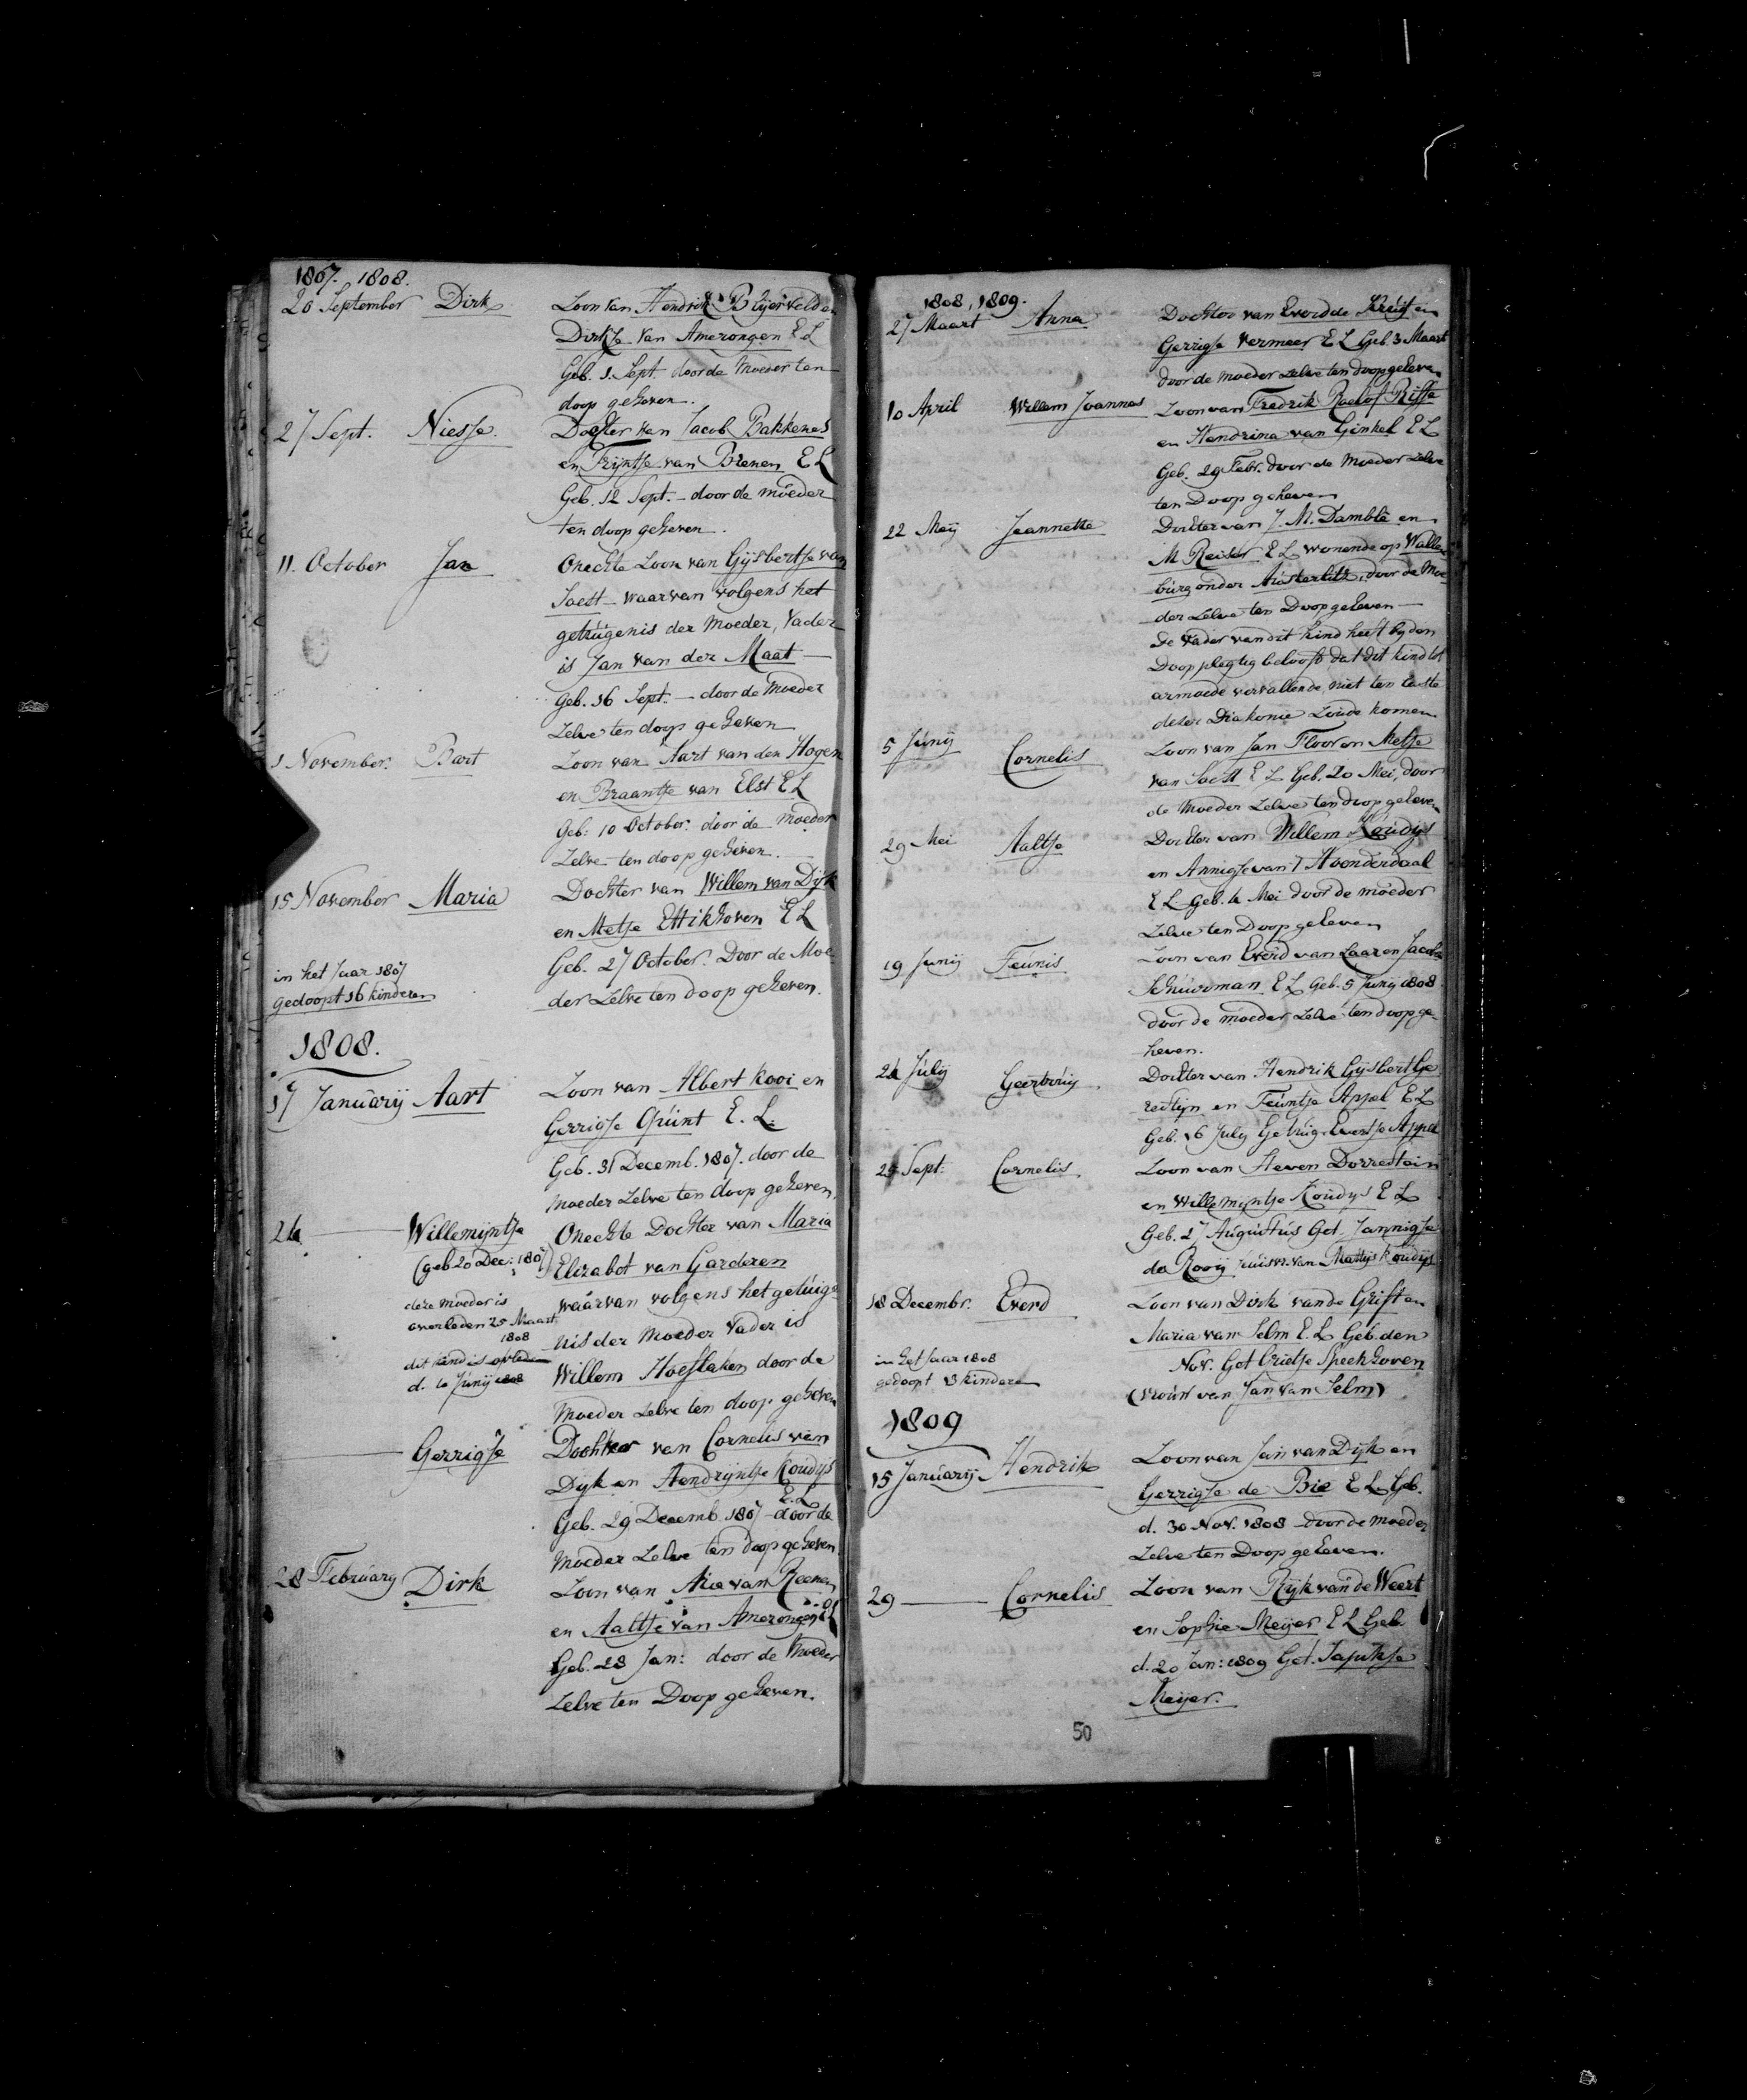 1807. 1808.
20 September Dirk Zoon van Hendrik Blijerveld en
Dirkje van Amerongen E L
Geb. 1. Sept. door de Moeder ten
doop geheven.
27 Sept. Niesje. Dogter van Jacob Bakkenes
en Trijntje van Brenen E L
Geb. 12 Sept. – door de moeder
ten doop geheven.
11. October Jan Onechte Zoon van Gijsbertje van
Soest – waarvan volgens het
getuigenis der Moeder, Vader
is Jan van der Maat –
Geb. 16 Sept. – door de Moeder
Zelve ten doop geheven
1 November. Bart Zoon van Aart van den Hogen
en Braantje van Elst E L
Geb: 10 October. door de moeder
Zelve ten doop geheven.
15 November Maria Dochter van Willem van Dijk
en Metje Ettikhoven E L
Geb. 27 October. Door de Moe
der Zelve ten doop geheven.
in het Jaar 1807
gedoopt 16 kinderen
1808.
17 Januarij Aart Zoon van Albert Kooi en
Gerrigje Quint E. L.
Geb. 31 Decemb. 1807. door de
moeder Zelve ten doop geheven,
24 Willemijntje Onechte Dochter van Maria
(geb 20 Dec: 1807) Elizabet van Garderen
waarvan volgens het getuige
deze moeder is
overleden 25 Maart
1808
nis der Moeder Vader is
dit kind is overleden
d. 10 Junij 1808
Willem Hoeflaken door de
Moeder Zelve ten doop geheven
Gerrigje Dochter van Cornelis van
Dijk en Hendrijntje Koudijs
E. L
Geb. 29 Decemb. 1807 – door de
Moeder Zelve ten doop geheven
28 February Dirk Zoon van Aive van Reenen
en Aaltje van Amerongen E L
Geb. 28 Jan: door de Moeder
Zelve ten Doop geheven.
1808, 1809.
27 Maart Anna Dochter van Everd de Kruif en
Gerrigje Vermeer E L Geb. 3 Maart
door de moeder Zelve ten doop geheven
10 April Willem Joannes Zoon van Fredrik Roelof Risse
en Hendrina van Ginkel E L
Geb. 29 Febr. door de Moeder Zelve
ten Doop geheven
22 Meij Jeannette Dochter van J. M. Damblé en
M. Reiser E L wonende op Wallen
burg onder Austerlitz, door de Moe
der Zelve ten Doop geheven –
De Vader van dit kind heeft by den
Doop plegtig beloofd dat dit kind tot
armoede vervallende, niet ten laste
dezer Diakonie Zoude komen
5 Junij Cornelis Zoon van Jan Floor en Metje
van Soest E L Geb. 20 Mei, door
de Moeder Zelve ten doop geheven
29 Mei Aaltje Dochter van Willem Koudijs
en Annigje van 't Hoenderdaal
E L Geb. 14 Mei door de moeder
Zelve ten Doop geheven
19 Junij Teunis Zoon van Everd van Laar en Jacoba
Schuurman E L Geb. 5 Junij 1808
door de moeder Zelve ten doop ge-
heven.
24 July Geertruij Dochter van Hendrik Gijsbert Ge
reitijn en Teuntje Appel E L
Geb. 16 July Getuige Evertje Appel
25 Sept: Cornelis Zoon van Steven Dorrestein
en Willemijntje Koudys E L
Geb. 27 Augustus Get. Jannigje
de Rooij huisvr. van Mattijs Koudijs
18 Decembr. Everd Zoon van Dirk van de Grift en
Maria van Selm E. L Geb. den
Nov. Get Crietje Speekhoven
in het jaar 1808
gedoopt 13 kinderen
(vrouw van Jan van Selm)
1809
15 Januarij Hendrik Zoon van Jan van Dijk en
Gerrigje de Bie E L Geb.
d. 30 Nov. 1808 door de moeder
Zelve ten Doop geheven.
29 Cornelis Zoon van Rijk van de Weert
en Sophie Meijer E L Geb.
d. 20 Jan: 1809 Get. Japikje
Meijer.
50